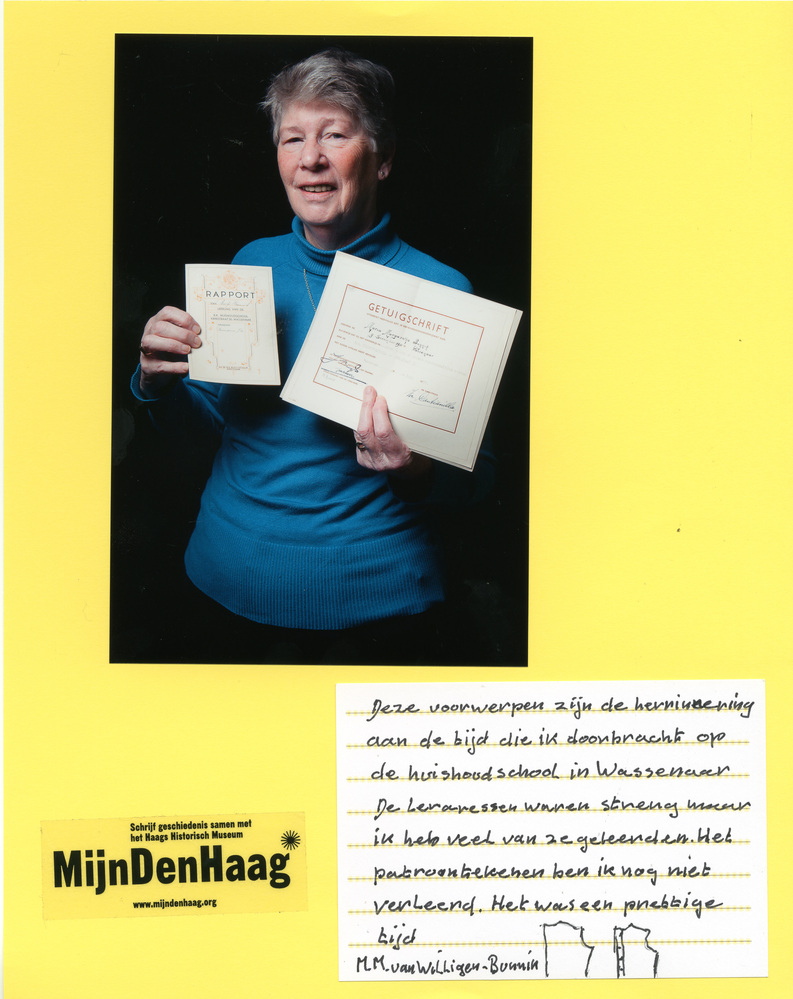 RAPPORT
GETUIGSCHRIFT
Deze voorwerpen zijn de hernindering
aan de tijd die ik doorbracht op
de huishoudschool in Wassenaar
De leraressen waren streng maar
ik heb veel van ze geleerden. Het
patroontekenen ben ik nog niet
verleerd. Het was een prettige
tijd
M.M. van Willigen-
Schrijf geschiedenis samen met
het Haags Historisch Museum
MijnDenHaag
www.mijndenhaag.org